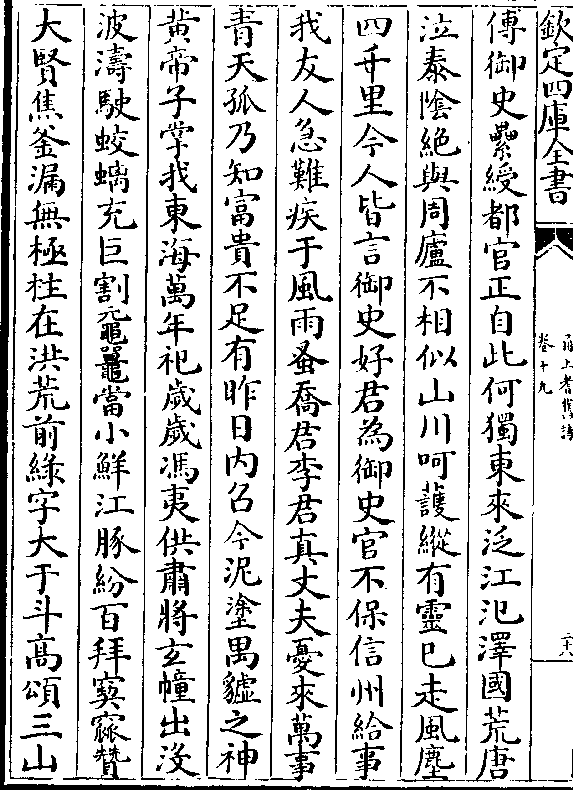 欽定四庫全書
卷十九
傅御史纍綬都官正自此何獨東來泛江汜澤國荒唐
泣泰陰絶與周廬不相似山川呵䕶縱有靈已走風塵
四千里今人皆言御史好君為御史官不保信州給事
我友人急難疾于風雨蚤喬君李君真丈夫憂來萬事
青天孤乃知富貴不足有昨日内召今泥塗禺䝞之神
黄帝子掌我東海萬年祀歲歲馮夷供肅將玄幢出没
波濤駛蛟螭充巨割黿鼉當小鮮江豚紛百拜窫窳贊
大賢焦釜漏無極柱在洪荒前緑字大于斗髙頌三山